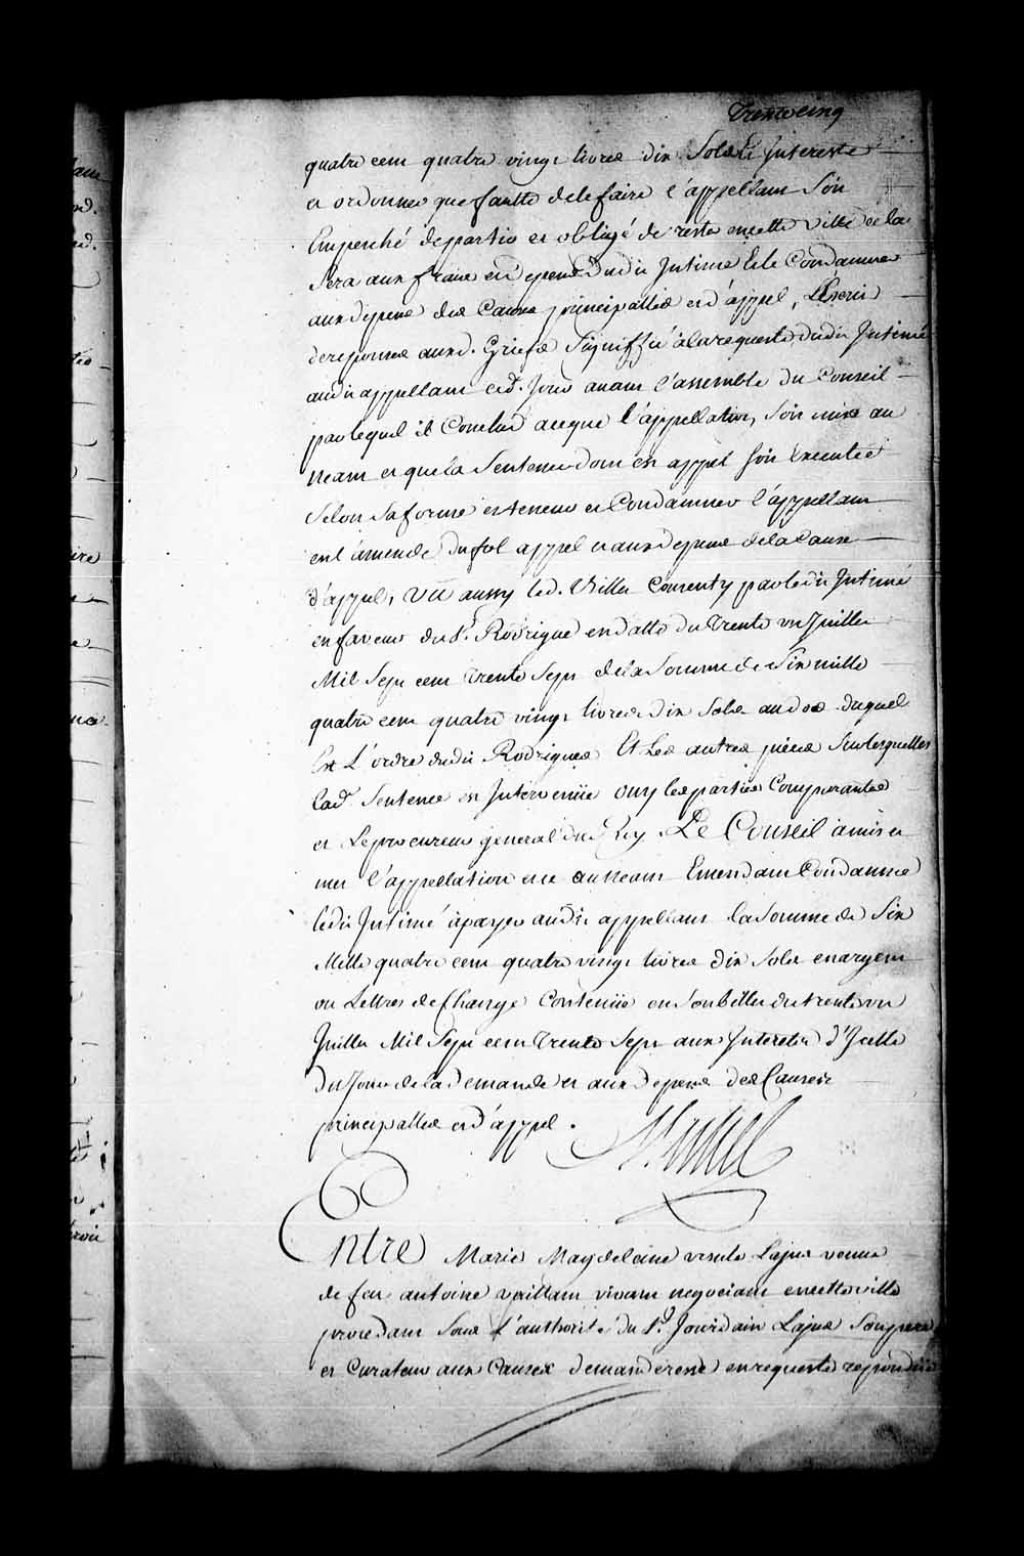 Trente cinq
quatre cent quatre vingt livres dix Sols & Interests
et ordonner que faulte de le faire l'appellant Soit
Empesché de partir et obligé de rester en cette Ville ce la
Sera aux frais et depens dudit Intimé & le Condamner
aux depens des Causes principalles et d'appel, L'Ecrit
de reponses auxd. Griefs Signiffié à la requeste dudit Intimé
audit appellant led. Jour avant l'assemblée du Conseil
par lequel il Conclud ace que l'appellation Soit mise au
neant et que la Sentence dont est appel Soit Executée
Selon Sa forme et teneur et Condamner l'appellant
en l'amende du fol appel et aux depens de la Cause
d'appel, Vû aussy led. Billet Consenty par ledit Intimé
en faveur du Sr. Rodrigue en datte du Trente un Juillet
Mil Sept cent Trente Sept de la Somme de Six mille
quatre cent quatre vingt livres dix Sols au dos duquel
Est L'ordre dudit Rodrigue Et Les autres pieces Sur lesquelles
lad. Sentence est Intervenüe ouy les parties Comparantes
et Le procureur general du Roy Le Conseil a mis et
met l'appellation et ce au neant Emendant Condamne
ledit Intimé à payer audit appellant la Somme de Six
Mille quatre cent quatre vingt livres dix Sols en argent
ou Lettres de Change Contenüe en Son billet du trente un
Juillet Mil Sept cent Trente Sept aux Interests d'Icelle
du Jour de la demande et aux depens des Causes
principalles et d'appel.
Entre Marie Magdeleine ursule Lajus veuve
de feu antoine vivant negociant en cette ville
procedant Sous l'authorité du Sr. Jourdain Lajus Son pere
et Curateur aux Causes demanderesse en requeste repondüe